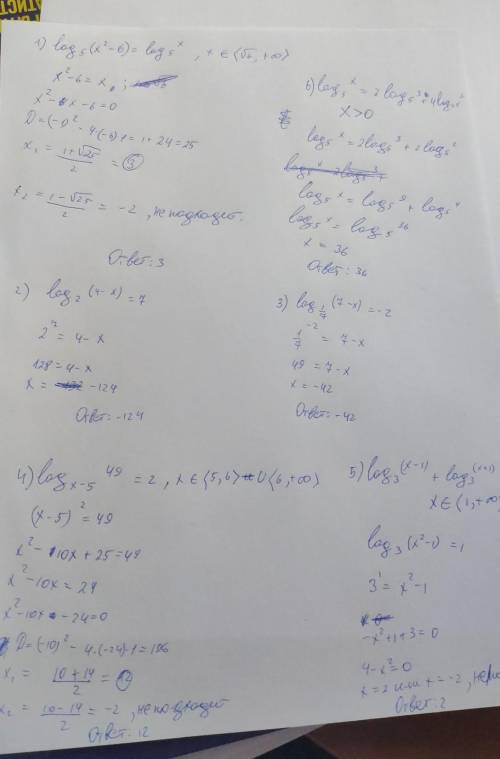 1) log₅(x²-6) = log₅ˣ , x ∈ (√6, +∞)
x²-6 = x ;
x² - x - 6 = 0
D = (-1)² - 4·(-6)·1 = 1 + 24 = 25
x₁ = (1+√25)/2 = 3
x₂ = (1-√25)/2 = -2 , не подходит.
Ответ: 3
6) log₅ˣ = 2 log₅³ + 4 log
x > 0
log₅ˣ = 2log₅³ + 2log₅²
log₅ˣ = log₅⁹ + log₅⁴
log₅ˣ = log₅³⁶
x = 36
Ответ: 36
2) log₂(4-x) = 7
2⁷ = 4-x
128 = 4-x
x = -124
Ответ: -124
3) log_1/7 (7-x) = -2
1/7⁻² = 7-x
49 = 7-x
x = -42
Ответ: -42
4) log_x-5 49 = 2 , x ∈ (5, 6) ∪ (6, +∞)
(x-5)² = 49
x² - 10x + 25 = 49
x² - 10x = 24
x² - 10x - 24 = 0
D = (-10)² - 4·(-24)·1 = 196
x₁ = (10+14)/2 = 12
x₂ = (10-14)/2 = -2 , не подходит
Ответ: 12
5) log₃(x-1) + log₃(x+1)
x ∈ (1, +∞
log₃(x²-1) = 1
3¹ = x²-1
-x²+1+3 = 0
4-x² = 0
x = 2 или x = -2,
Ответ: 2